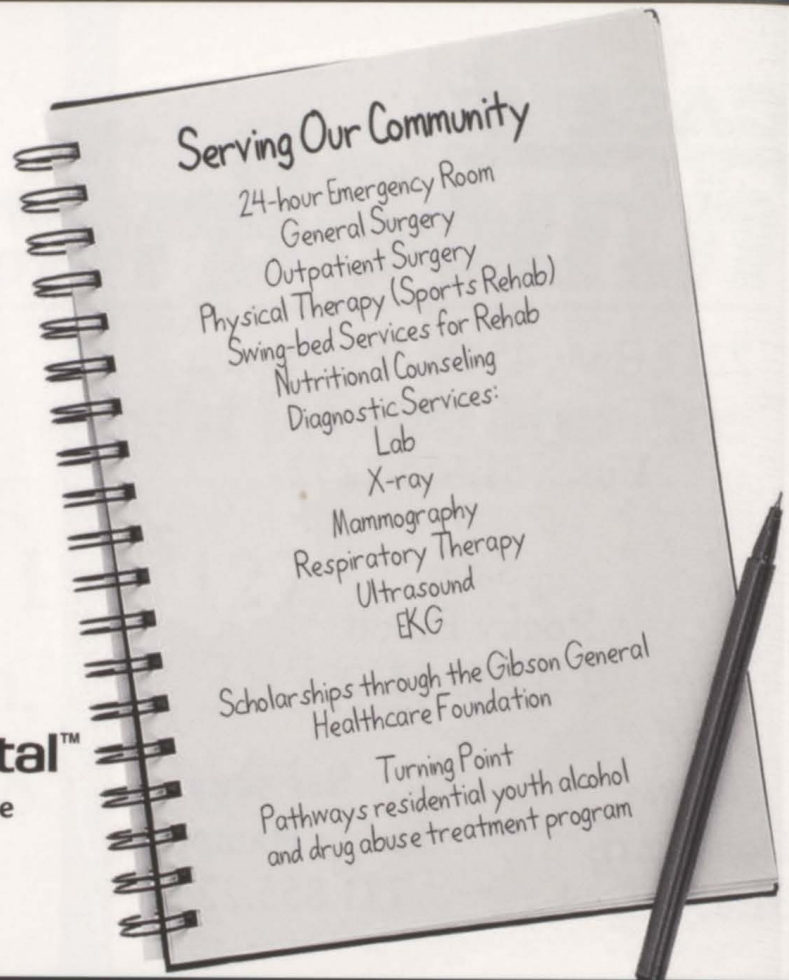 Serving Our Community
24-hour Emergency Room
General Surgery
Outpatient Surgery
Physical Therapy (Sports Rehab)
Swing-bed Services for Rehab
Nutritional Counseling
Diagnostic Services:
Lab
X-ray
Mammography
Respiratory Therapy
Ultrasound
EKG
Scholarships through the Gibson General
Healthcare Foundation
Turning Point
Pathways residential youth alcohol
and drug abuse treatment program
tal™
e